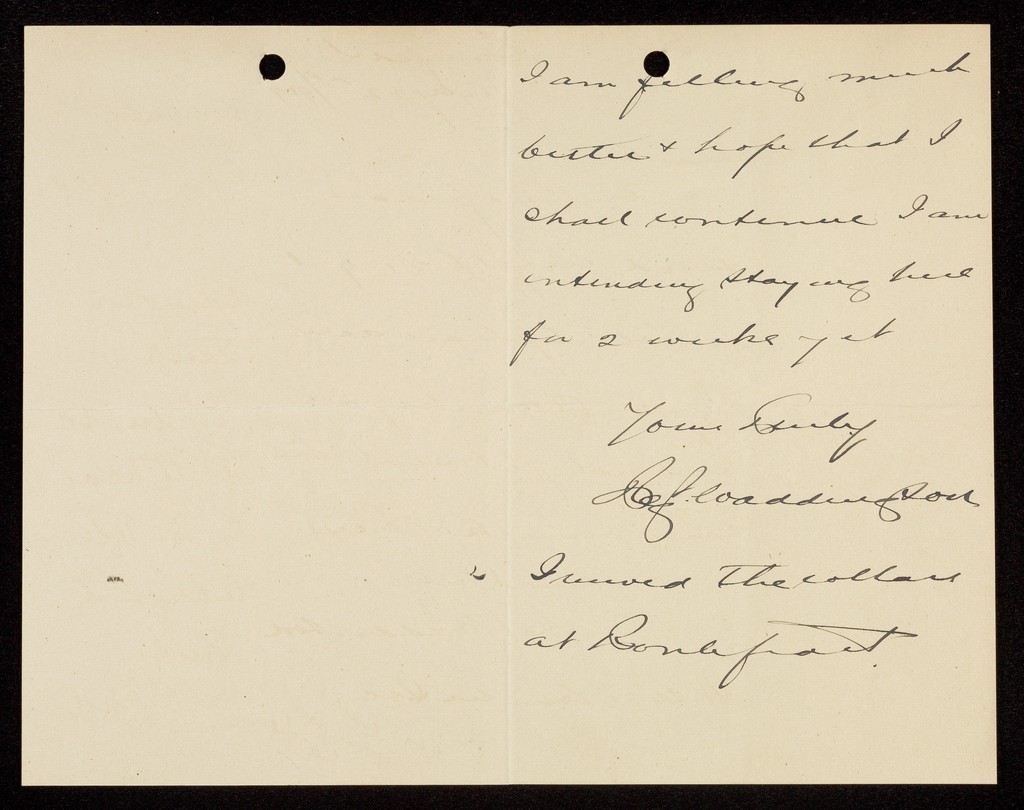 I am felling much
better & hope that I
shall continue I am
intending staying here
for 2 weeks yet
Yours Truly
J. Waddington
I the collars
at